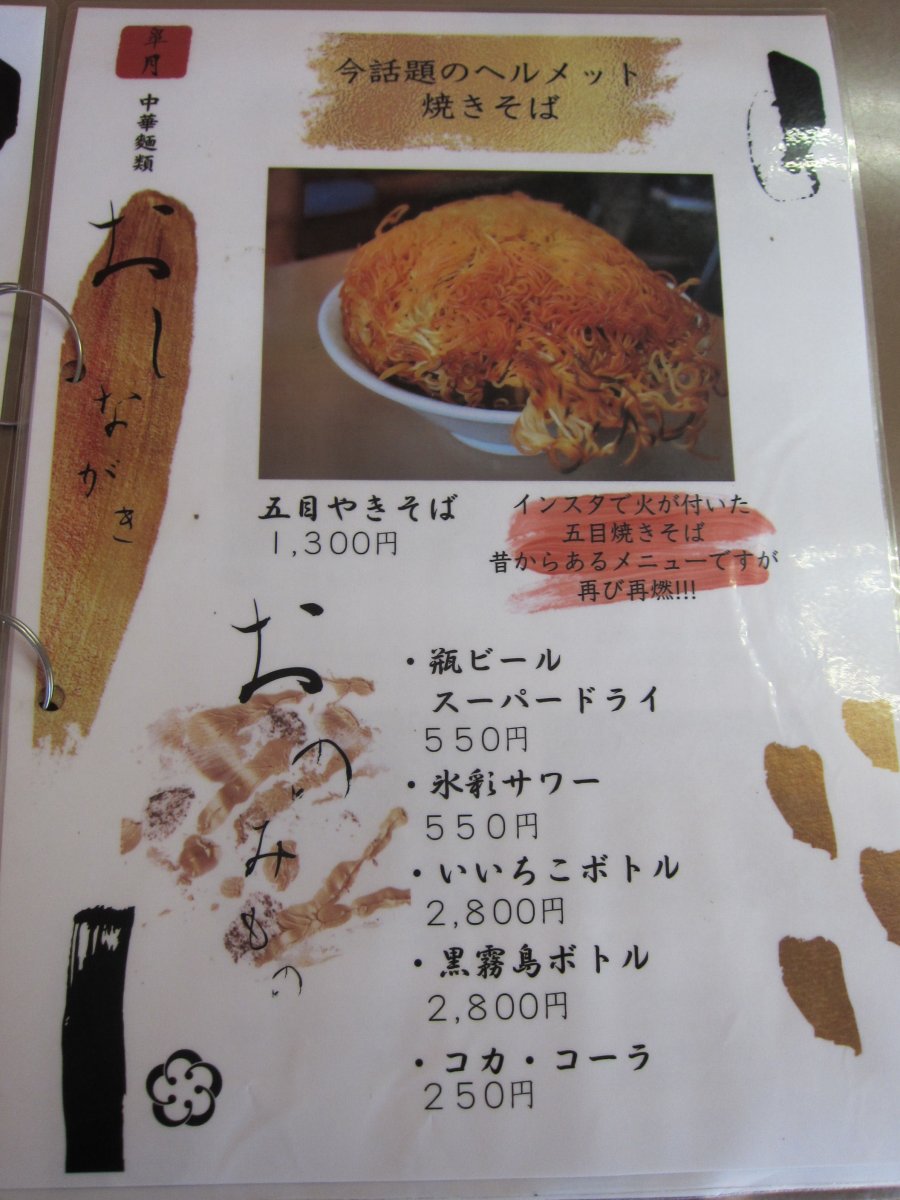 皐月
中華麺類
おしながき
今話題のヘルメット
焼きそば
五目やきそば
1,300円
インスタで火が付いた
五目焼きそば
昔からあるメニューですが
再び再燃!!!
おのみもの
・瓶ビール
スーパードライ
５５０円
・氷彩サワー
５５０円
・いいちこボトル
２,８００円
・黒霧島ボトル
２,８００円
・コカ・コーラ
２５０円